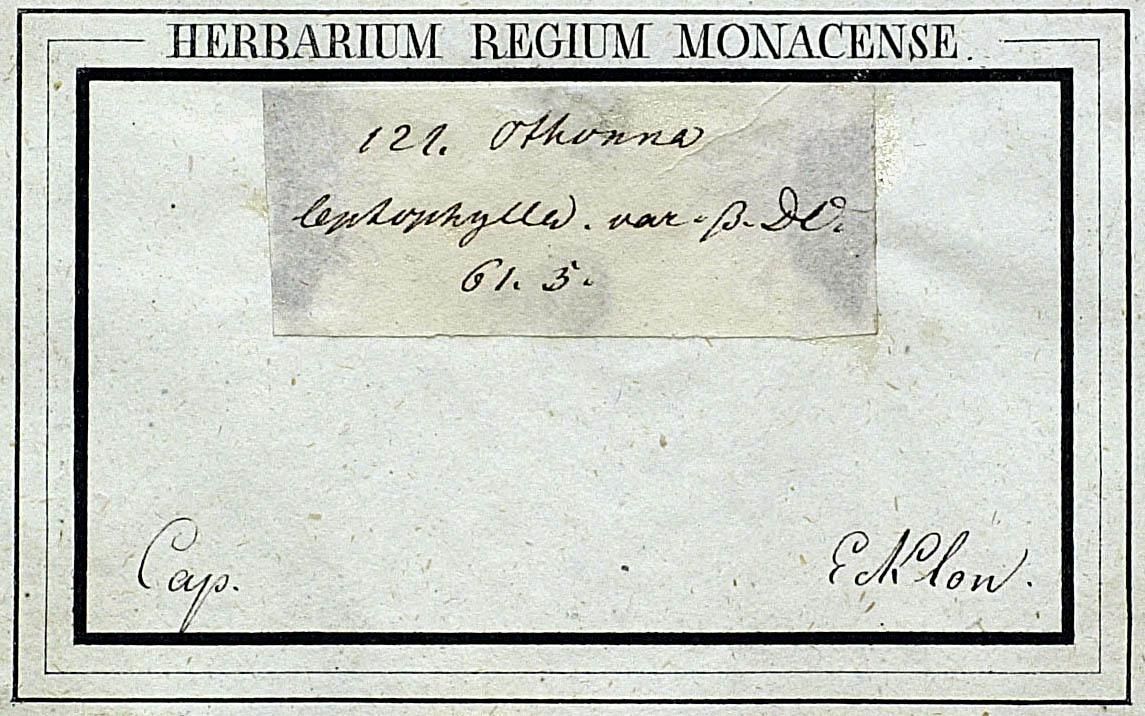 HERBARIUM REGIUM MONACENSE.
121. Othonna
leptophylla. var. β. DC.
61. 5.
Cap.
Ecklon.